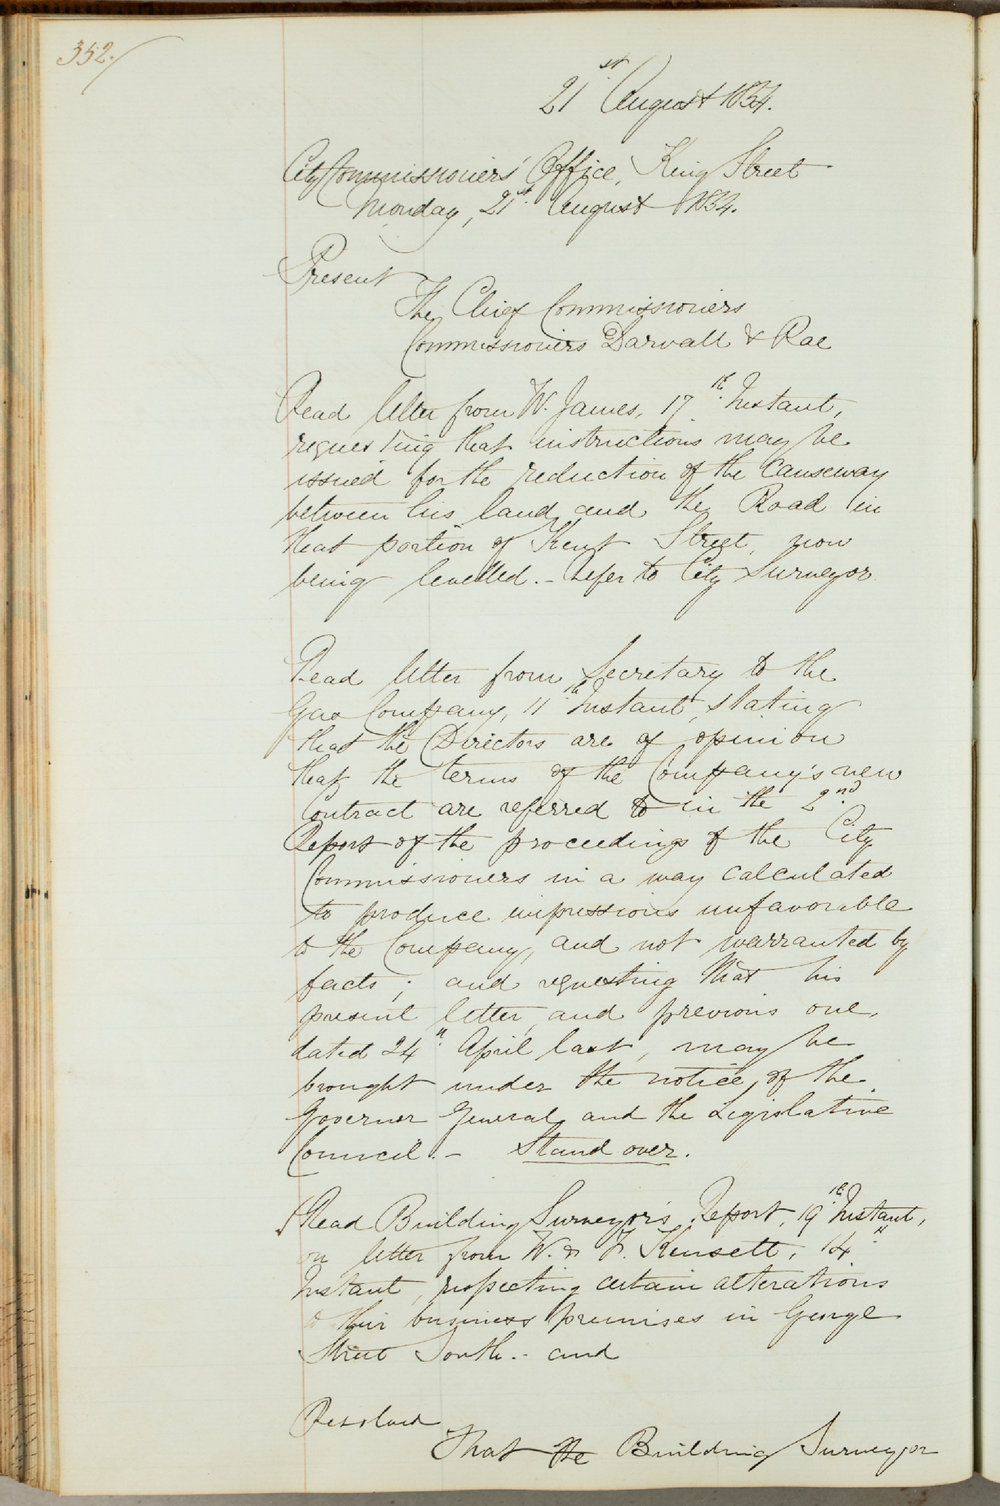 352.
21st August 1854.
City Commissioners' Office, King Street
Monday, 21st August 1854.
Present
The Chief Commissioners
Commissioners Darvall & Rae
Read letter from W. James, 17th Instant,
requesting that instructions may be
issued for the reduction of the Causeway
between his land and the Road in
that portion of Kent Street, now
being levelled. - Refer to City Surveyor
Read letter from Secretary to the
Gas Company, 11th Instant, stating
that the Directors are of opinion
that the terms of the Company's new
Contract are referred to in the 2nd
Report of the proceedings of the City
Commissioners in a way calculated
to produce impressions unfavorable
to the Company, and not warranted by
facts; and requesting that his
present letter, and previous one,
dated 24th April last, may be
brought under the notice, of the
Governor General and the Legislative
Council. - Stand over.
Read Building Surveyor's Report, 19th Instant,
on letter from W. & F. Kensett, 14th
Instant, respecting certain alterations
to their business premises in George
Street South. - and
Resolved
That the Building Surveyor